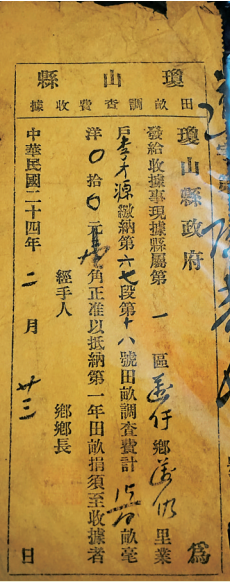 瓊山縣
田畝調查費收據
瓊山縣政府 為
發給收據事現據縣屬第一區 鄉 里業
戶李才源繳納第六七段第十八號田畝調查費計 畝毫
洋〇拾〇元 角正准以抵納第一年田畝捐須至收據者
經手人 鄉鄉長
中華民國二十四年二月廿三日